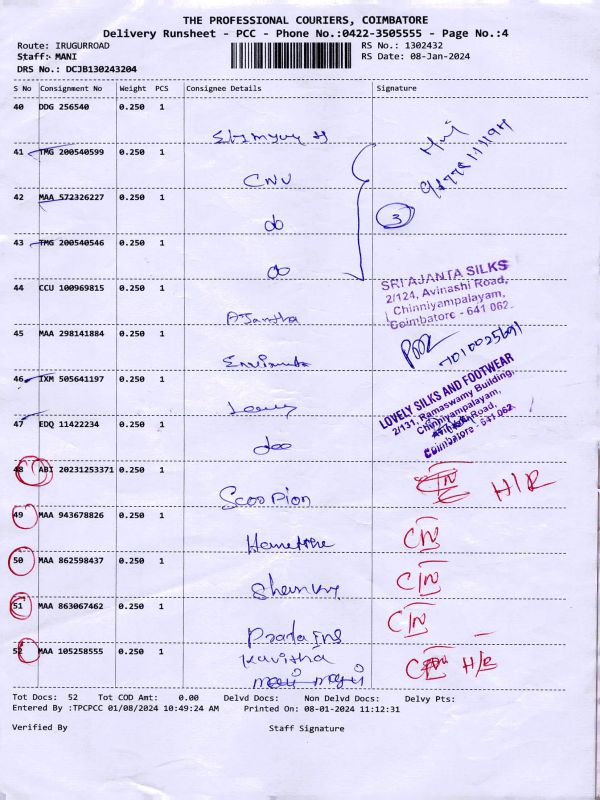 THE PROFESSIONAL COURIERS, COIMBATORE
Delivery Runsheet - PCC - Phone No.:0422-3505555 - Page No.:4
Route: IRUGURROAD RS No.: 1302432
Staff: MANI RS Date: 08-Jan-2024
DRS No.: DCJB130243204
S No Consignment No Weight PCS Consignee Details Signature
40 DDG 256540 0.250 1
41 TMG 200540599 0.250 1
CNU
42 MAA 572326227 0.250 1
do
3
43 TMG 200540546 0.250 1
do
44 CCU 100969815 0.250 1
SRI AJANTA SILKS
2/124, Avinashi Road,
Chinniyampalayam,
Coimbatore - 641 062.
AJantha
45 MAA 298141884 0.250 1
7010025691
46 IXM 505641197 0.250 1
LOVELY SILKS AND FOOTWEAR
2/131, Ramaswamy Building,
Chinniyampalayam,
Avinashi Road,
Coimbatore - 641 062.
47 EDQ 11422234 0.250 1
doo
48 ABI 20231253371 0.250 1
Scorpion H/R
49 MAA 943678826 0.250 1
50 MAA 862598437 0.250 1
51 MAA 863067462 0.250 1
52 MAA 105258555 0.250 1
Kavitha H/R
Tot Docs: 52 Tot COD Amt: 0.00 Delvd Docs: Non Delvd Docs: Delvy Pts:
Entered By :TPCPCC 01/08/2024 10:49:24 AM Printed On: 08-01-2024 11:12:31
Verified By Staff Signature